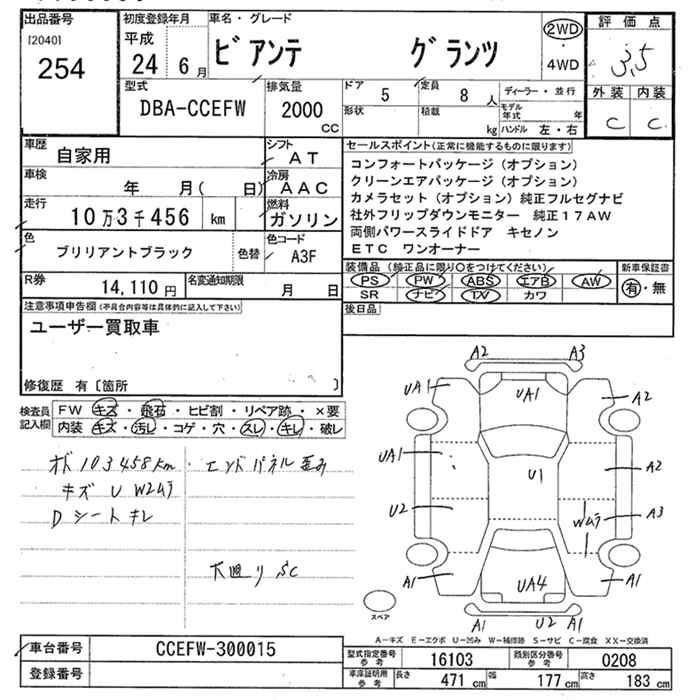 出品番号
[2040]
254
初度登録年月
平成
24 6 月
車名・グレード
ビアンテ グランツ
2WD
・
4WD
評価点
3.5
外装 内装
C C
型式
DBA-CCEFW
排気量
2000
cc
ドア
5
定員
8 人
形状
積載
kg
ディーラー・並行
モデル年式 年
ハンドル 左・右
車歴
自家用
シフト
AT
車検
年 月( 日)
冷房
AAC
走行
10万3千456 km
燃料
ガソリン
色
ブリリアントブラック
色替
色コード
A3F
R券
14,110 円
名変通知期限
月 日
セールスポイント(正常に機能するものに限ります)
コンフォートパッケージ(オプション)
クリーンエアパッケージ(オプション)
カメラセット(オプション)純正フルセグナビ
社外フリップダウンモニター 純正17AW
両側パワースライドドア キセノン
ETC ワンオーナー
装備品(純正品に限り○をつけてください)
PS PW ABS エアB AW
SR ナビ TV カワ
新車保証書
有・無
後日品
注意事項申告欄(不具合内容等は具体的に記入して下さい)
ユーザー買取車
修復歴 有〔箇所 〕
検査員
記入欄
FW キズ・飛石・ヒビ割・リペア跡・×要
内装 キズ・汚レ・コゲ・穴・スレ・キレ・破レ
メド 103458km
キズ U W2ムラ
Dシート キレ
エンドパネル歪み
下廻り SC
A2 A3
UA1 UA1 A2
UA1 U1 A2
U2 Wムラ A3
A1 UA4 A1
A1 U2 A1
スペア
A－キズ E－エクボ U－凹み W－補修跡 S－サビ C－腐食 XX－交換済
車台番号
CCEFW-300015
登録番号
型式指定番号
参考
16103
類別区分番号
参考
0208
車庫証明用
参考
長さ 471 cm
幅 177 cm
高さ 183 cm